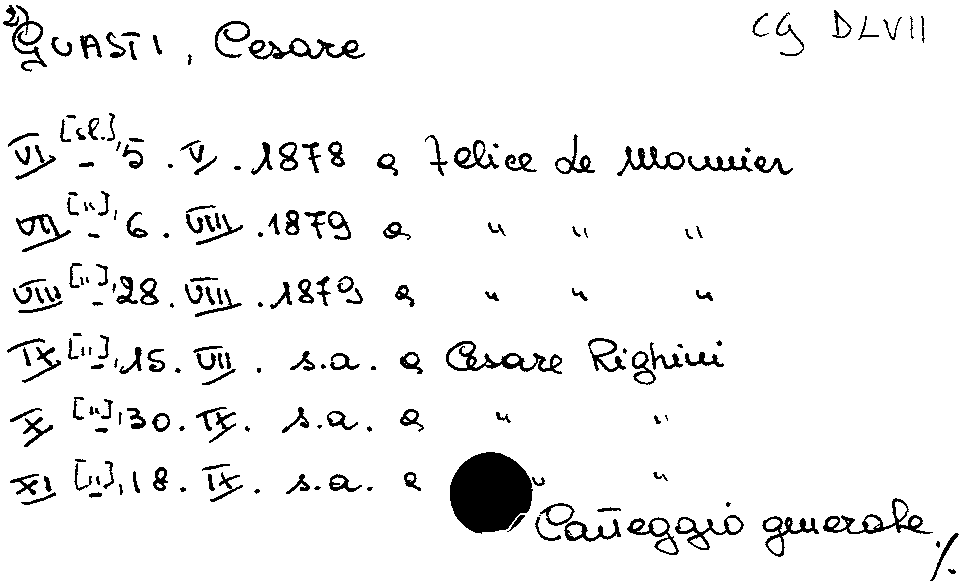 2)
GUASTI, Cesare CG DLVII
VI [s.l.], 5. V. 1878 a Felice Le Monnier
VII ["], 6. VIII. 1879 a " " "
VIII ["], 28. VIII. 1879 a " " "
IX ["], 15. VII. s.a. a Cesare Righini
X ["], 30. IX. s.a. a " "
XI ["], 18. IX. s.a. a " "
Carteggio generale
./.